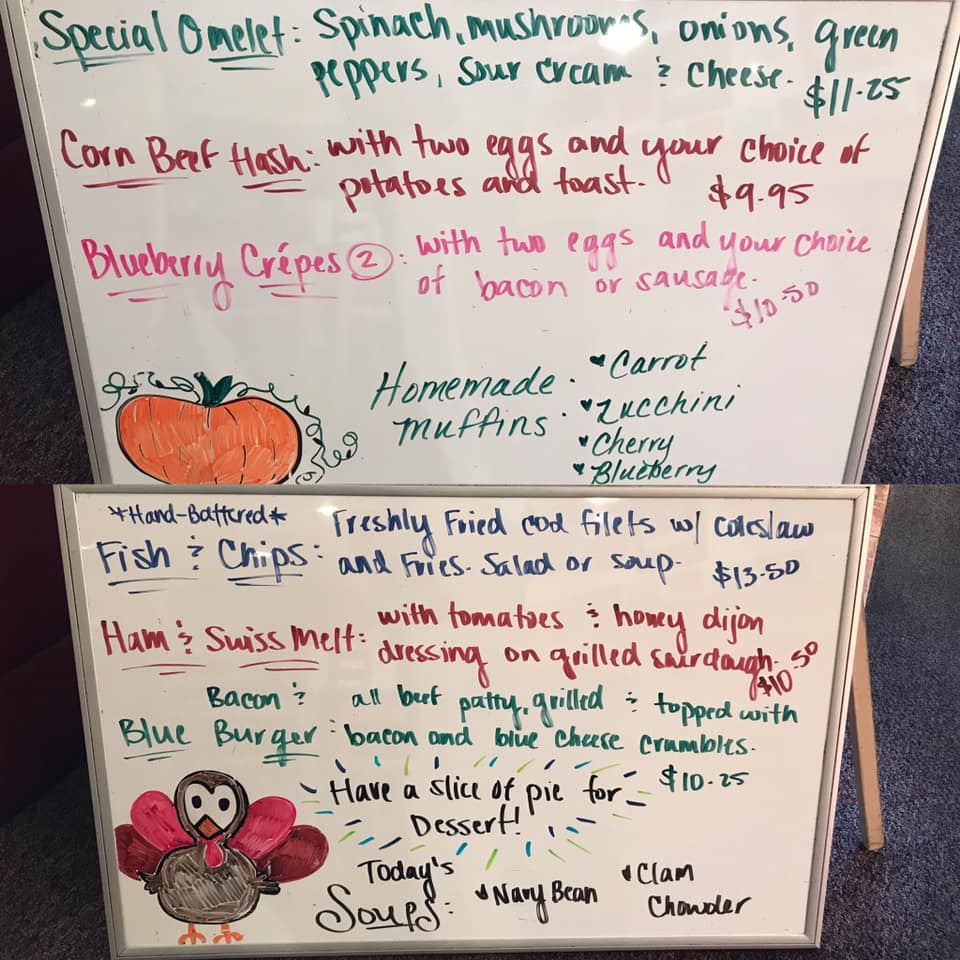 Special Omelet: Spinach, mushrooms, onions, green
peppers, sour cream & cheese. $11.25
Corn Beef Hash: with two eggs and your choice of
potatoes and toast. $9.95
Blueberry Crépes ②: with two eggs and your choice
of bacon or sausage.
$10.50
Homemade muffins:
Carrot
Zucchini
Cherry
Blueberry
*Hand-Battered*
Fish & Chips: Freshly Fried cod filets w/ coleslaw
and Fries. Salad or soup. $13.50
Ham & Swiss Melt: with tomatoes & honey dijon
dressing on grilled sourdough. $10.50
Bacon & Blue Burger: all beef patty, grilled & topped with
bacon and blue cheese crumbles.
$10.25
Have a slice of pie for
Dessert!
Today's
Soups:
Navy Bean
Clam
Chowder